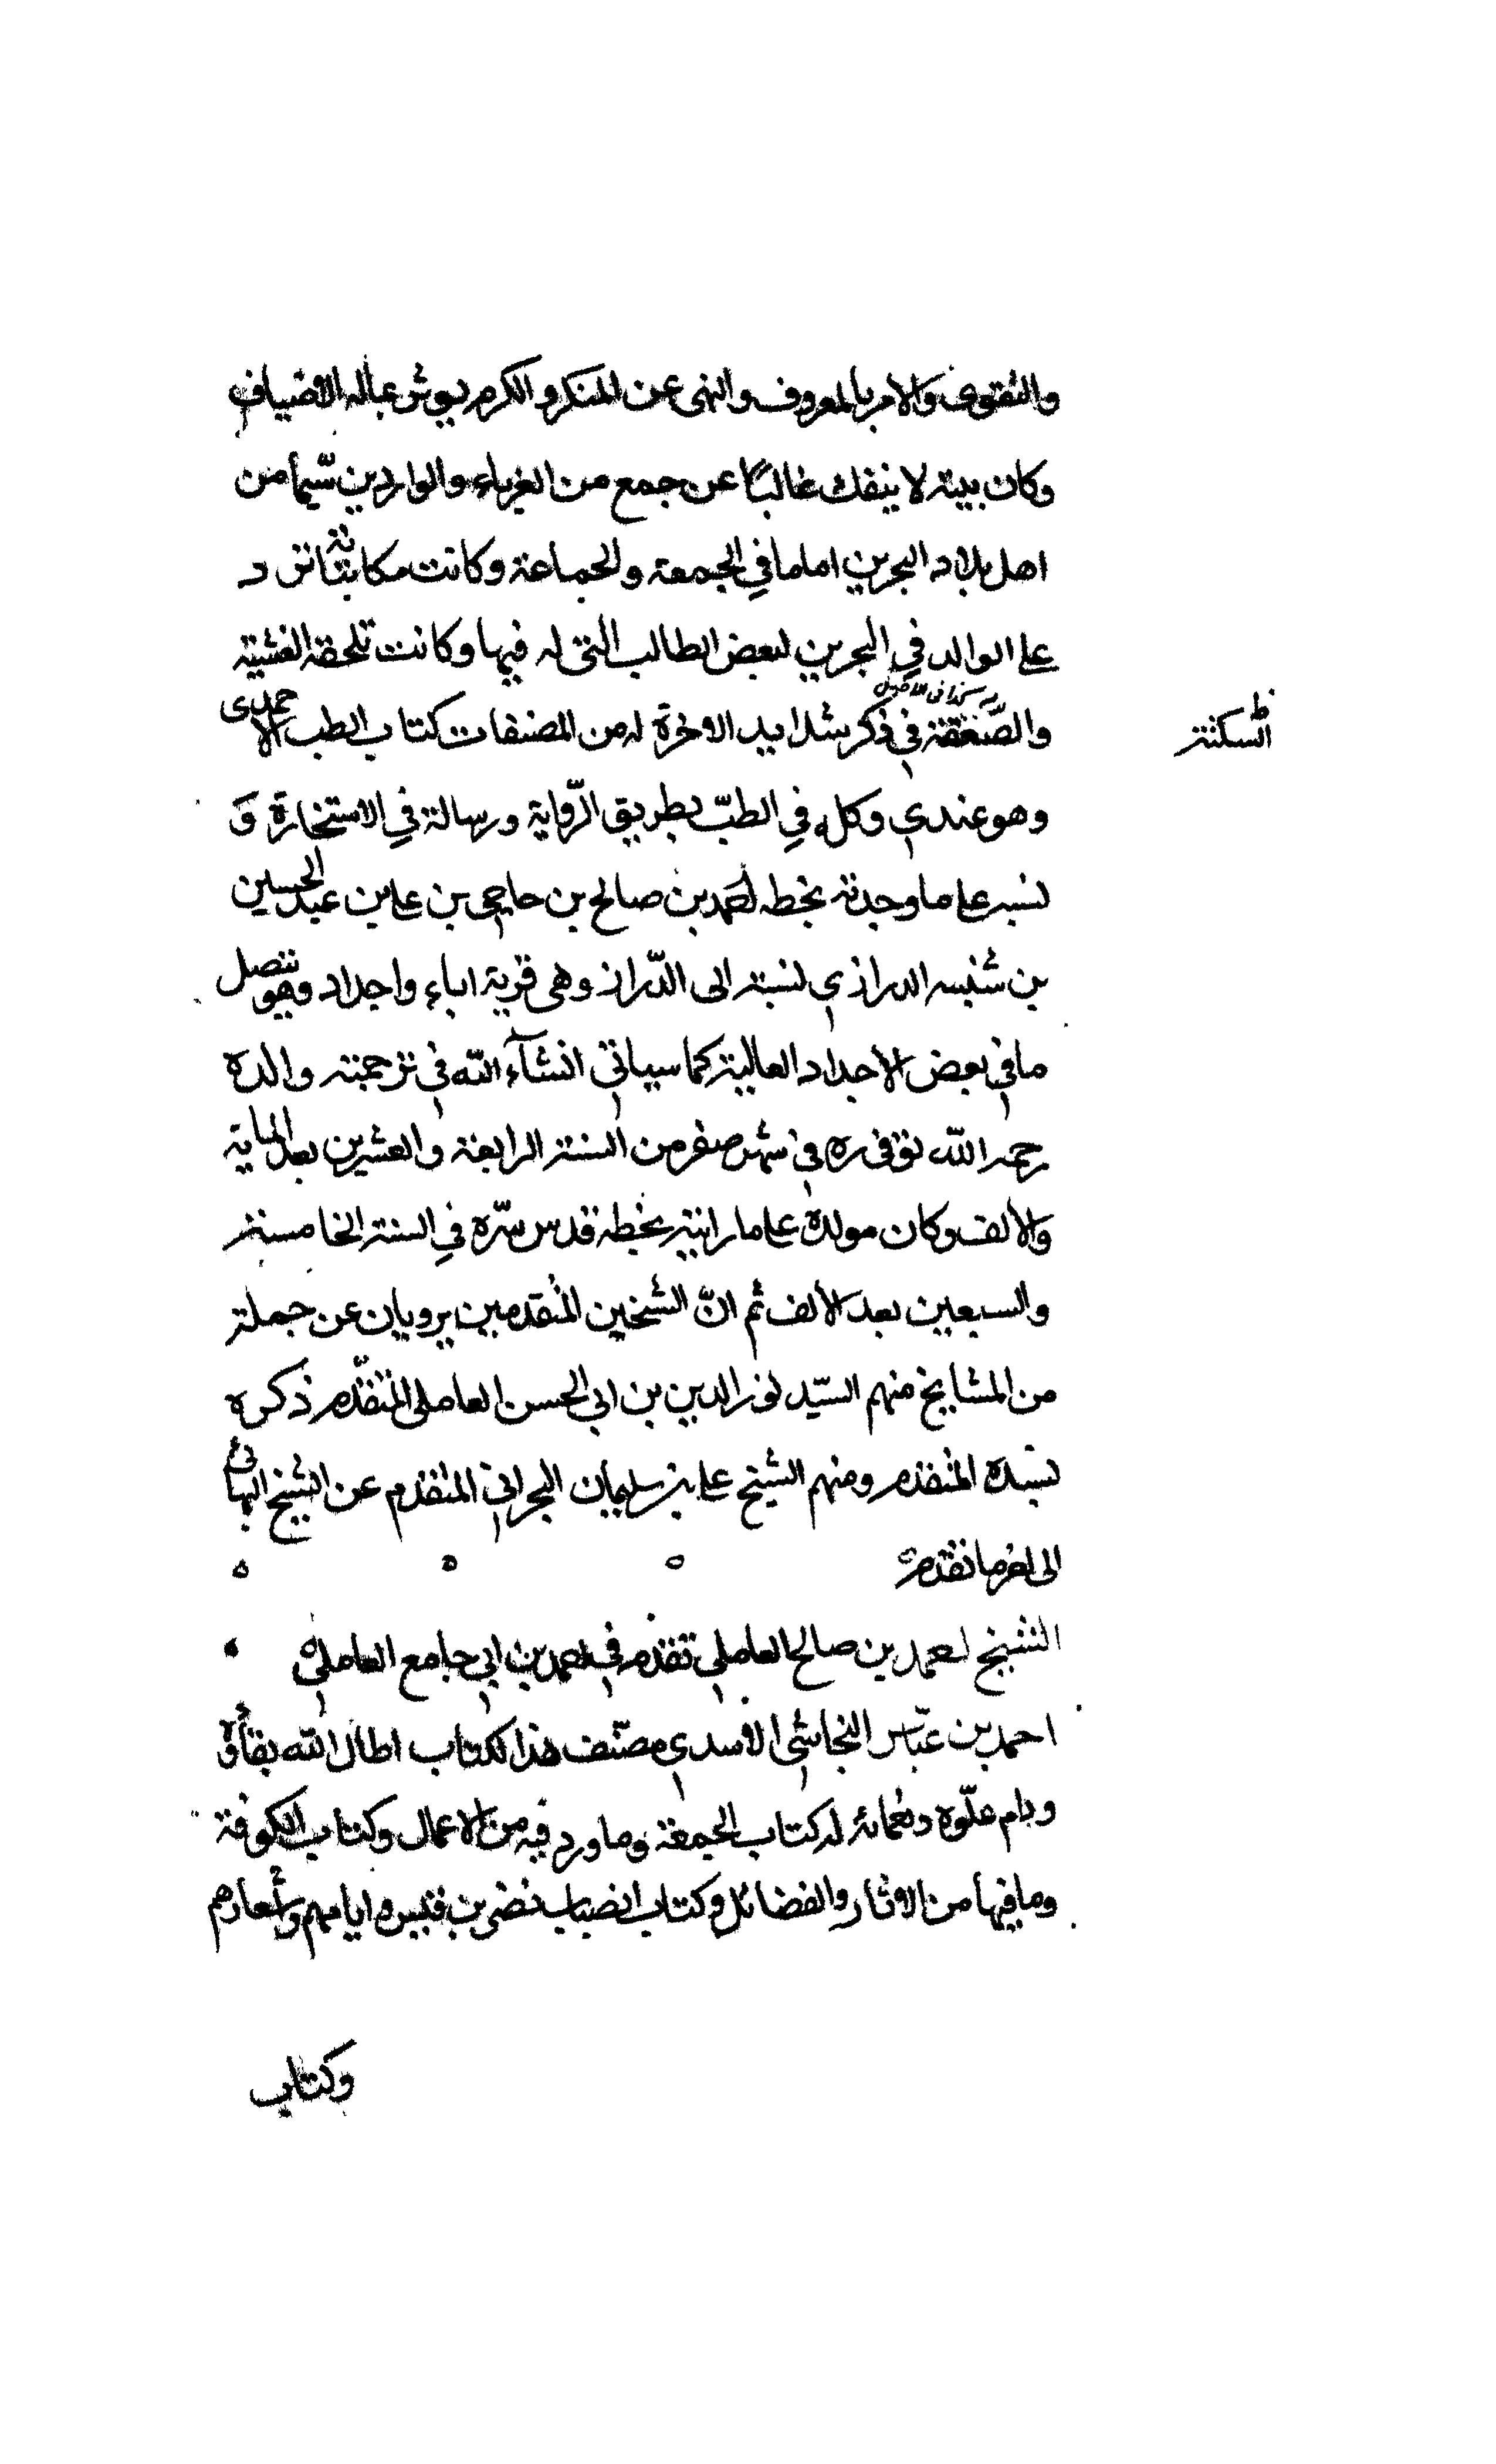 والتقوى والامر بالمعروف والنهى عن المنكر والكرم يوثر عباله الاضياف
وكان بيته لا ينفك غالبًا عن جمع من الغرباء والواردين سيّما من
اهل بلاد البحرين اماما في الجمعة والجماعة وكانت مكاتباته ترد
على الوالد في البحرين لبعض المطالب التى له فيها وكانت تلحقه الغشية
والصّعقة في ذكر شدايد الاخرة له من المصنفات كتاب الطب الاحمدى
السكتة
وهو عندي وكله في الطبّ بطريق الرّواية ورسالة في الاستخارة وَ
نسبه على ما وجدته بخطه احمد بن صالح بن حاجى بن على بن عبد الحسين
بن شنبسه الدرازي نسبته الى الدّراز وهى قرية اباء واجداد وهو يتصل
ما في بعض الاجداد العالية كما سياتي انشآء الله في ترجمته والده
رحمه الله توفى ره في شهر صفر من السنة الرابعة والعشرين بعد الماية
والالف وكان مولده على ما رايته بخطه قدس سّره في السنة الخامسة
والسبعين بعد الالف ثم انّ الشيخين المتقدمين يرويان عن جملة
من المشايخ منهم السيّد نور الدين بن ابي الحسن العاملى المتقدّم ذكره
بسنده المتقدم ومنهم الشيخ على بن سليمان البحراني المتقدم عن الشيخ البهائى
الى اخر ما تقدم
الشيخ احمد بن صالح العاملي تقدم في احمد بن ابي جامع العاملي
احمد بن عبّاس النجاشى الاسدي مصنّف هذا الكتاب اطال الله بقاؤه
وادام علوّه ونعمائه له كتاب الجمعة وما ورد فيه من الاعمال وكتاب الكوفة
وما فيها من الاثار والفضائل وكتاب انساب نضر بن قيس وايامهم واشعارهم
وكتاب